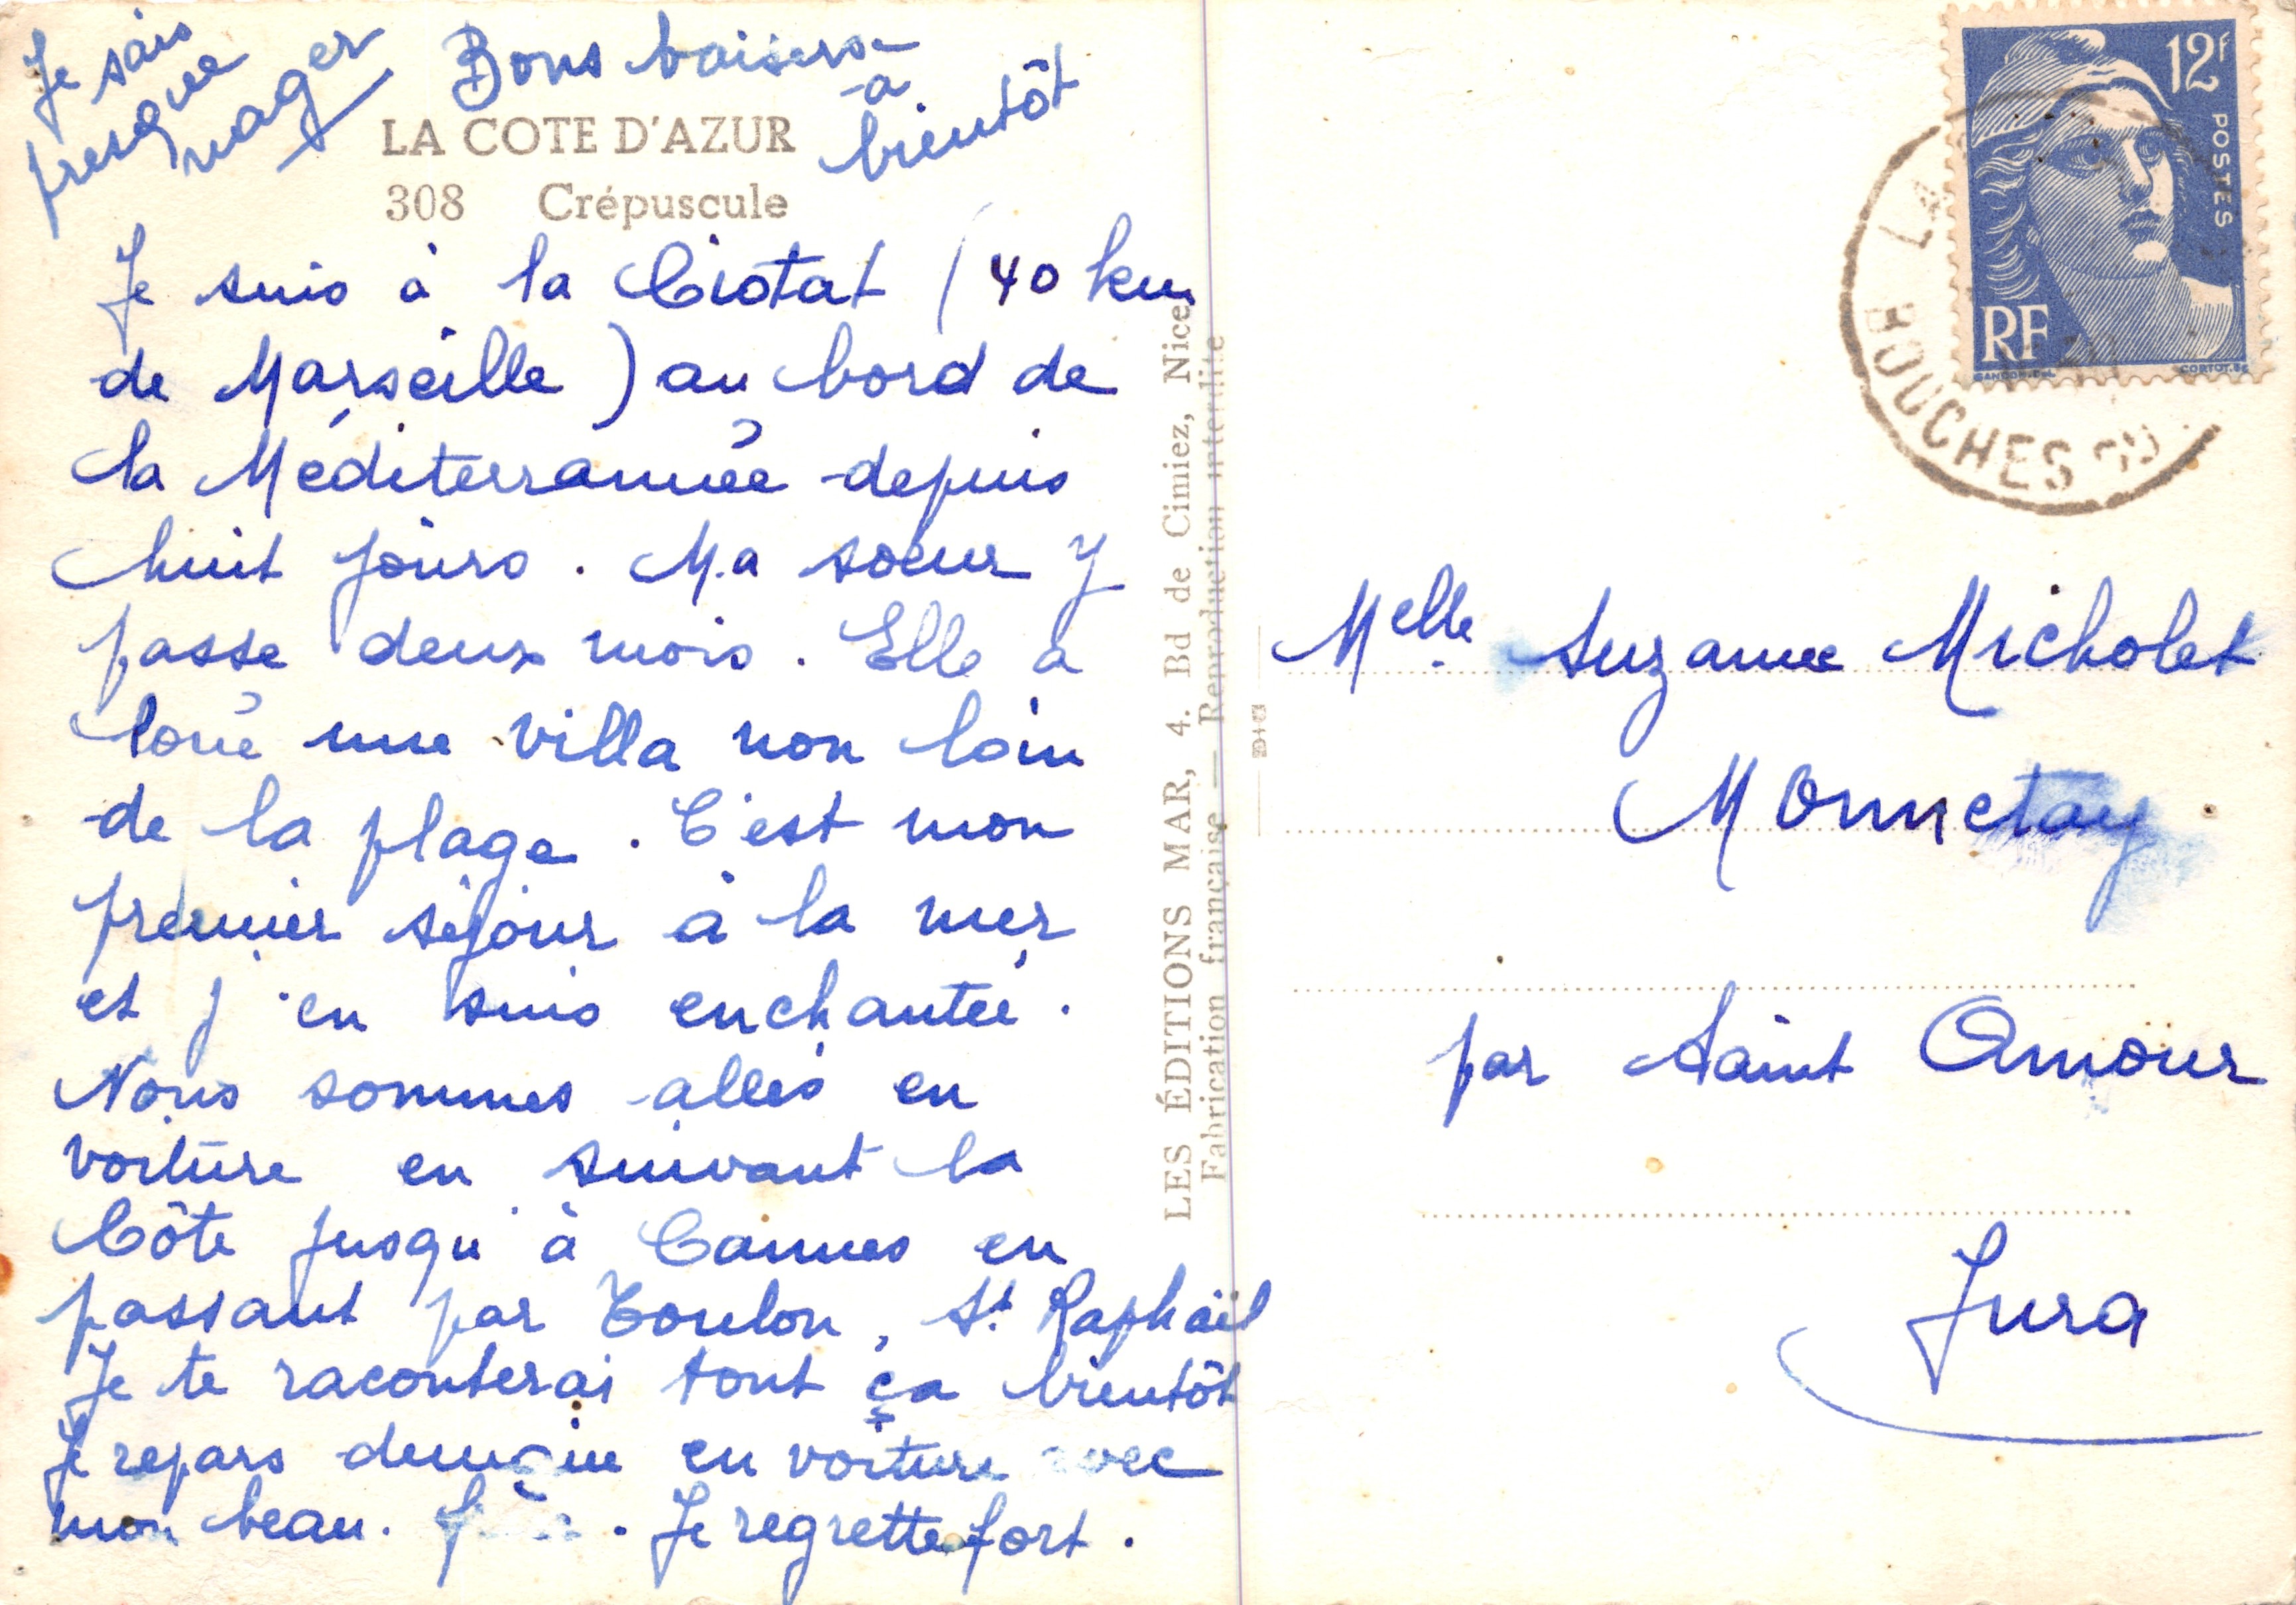 Je sais
presque
nager
Bons baisers
à
bientôt
LA COTE D'AZUR
308 Crépuscule
Je suis à la Ciotat (40 km
de Marseille) au bord de
la Méditerrannée depuis
huit jours. Ma soeur y
passe deux mois. Elle a
loué une villa non loin
de la plage. C'est mon
premier séjour à la mer
et j'en suis enchantée.
Nous sommes allés en
voiture en suivant la
Côte jusqu'à Cannes en
passant par Toulon, St Raphaël
Je te raconterai tout ça bientôt
Je repars demain en voiture avec
mon beau. . Je regrette fort.
LES ÉDITIONS MAR, 4. Bd de Cimiez, Nice
Fabrication française — Reproduction interdite
12f
POSTES
RF
GANDON.DEL
CORTOT.SC
LA
BOUCHES
Melle Suzanne Micholet
Monnetay
par Saint Amour
Jura